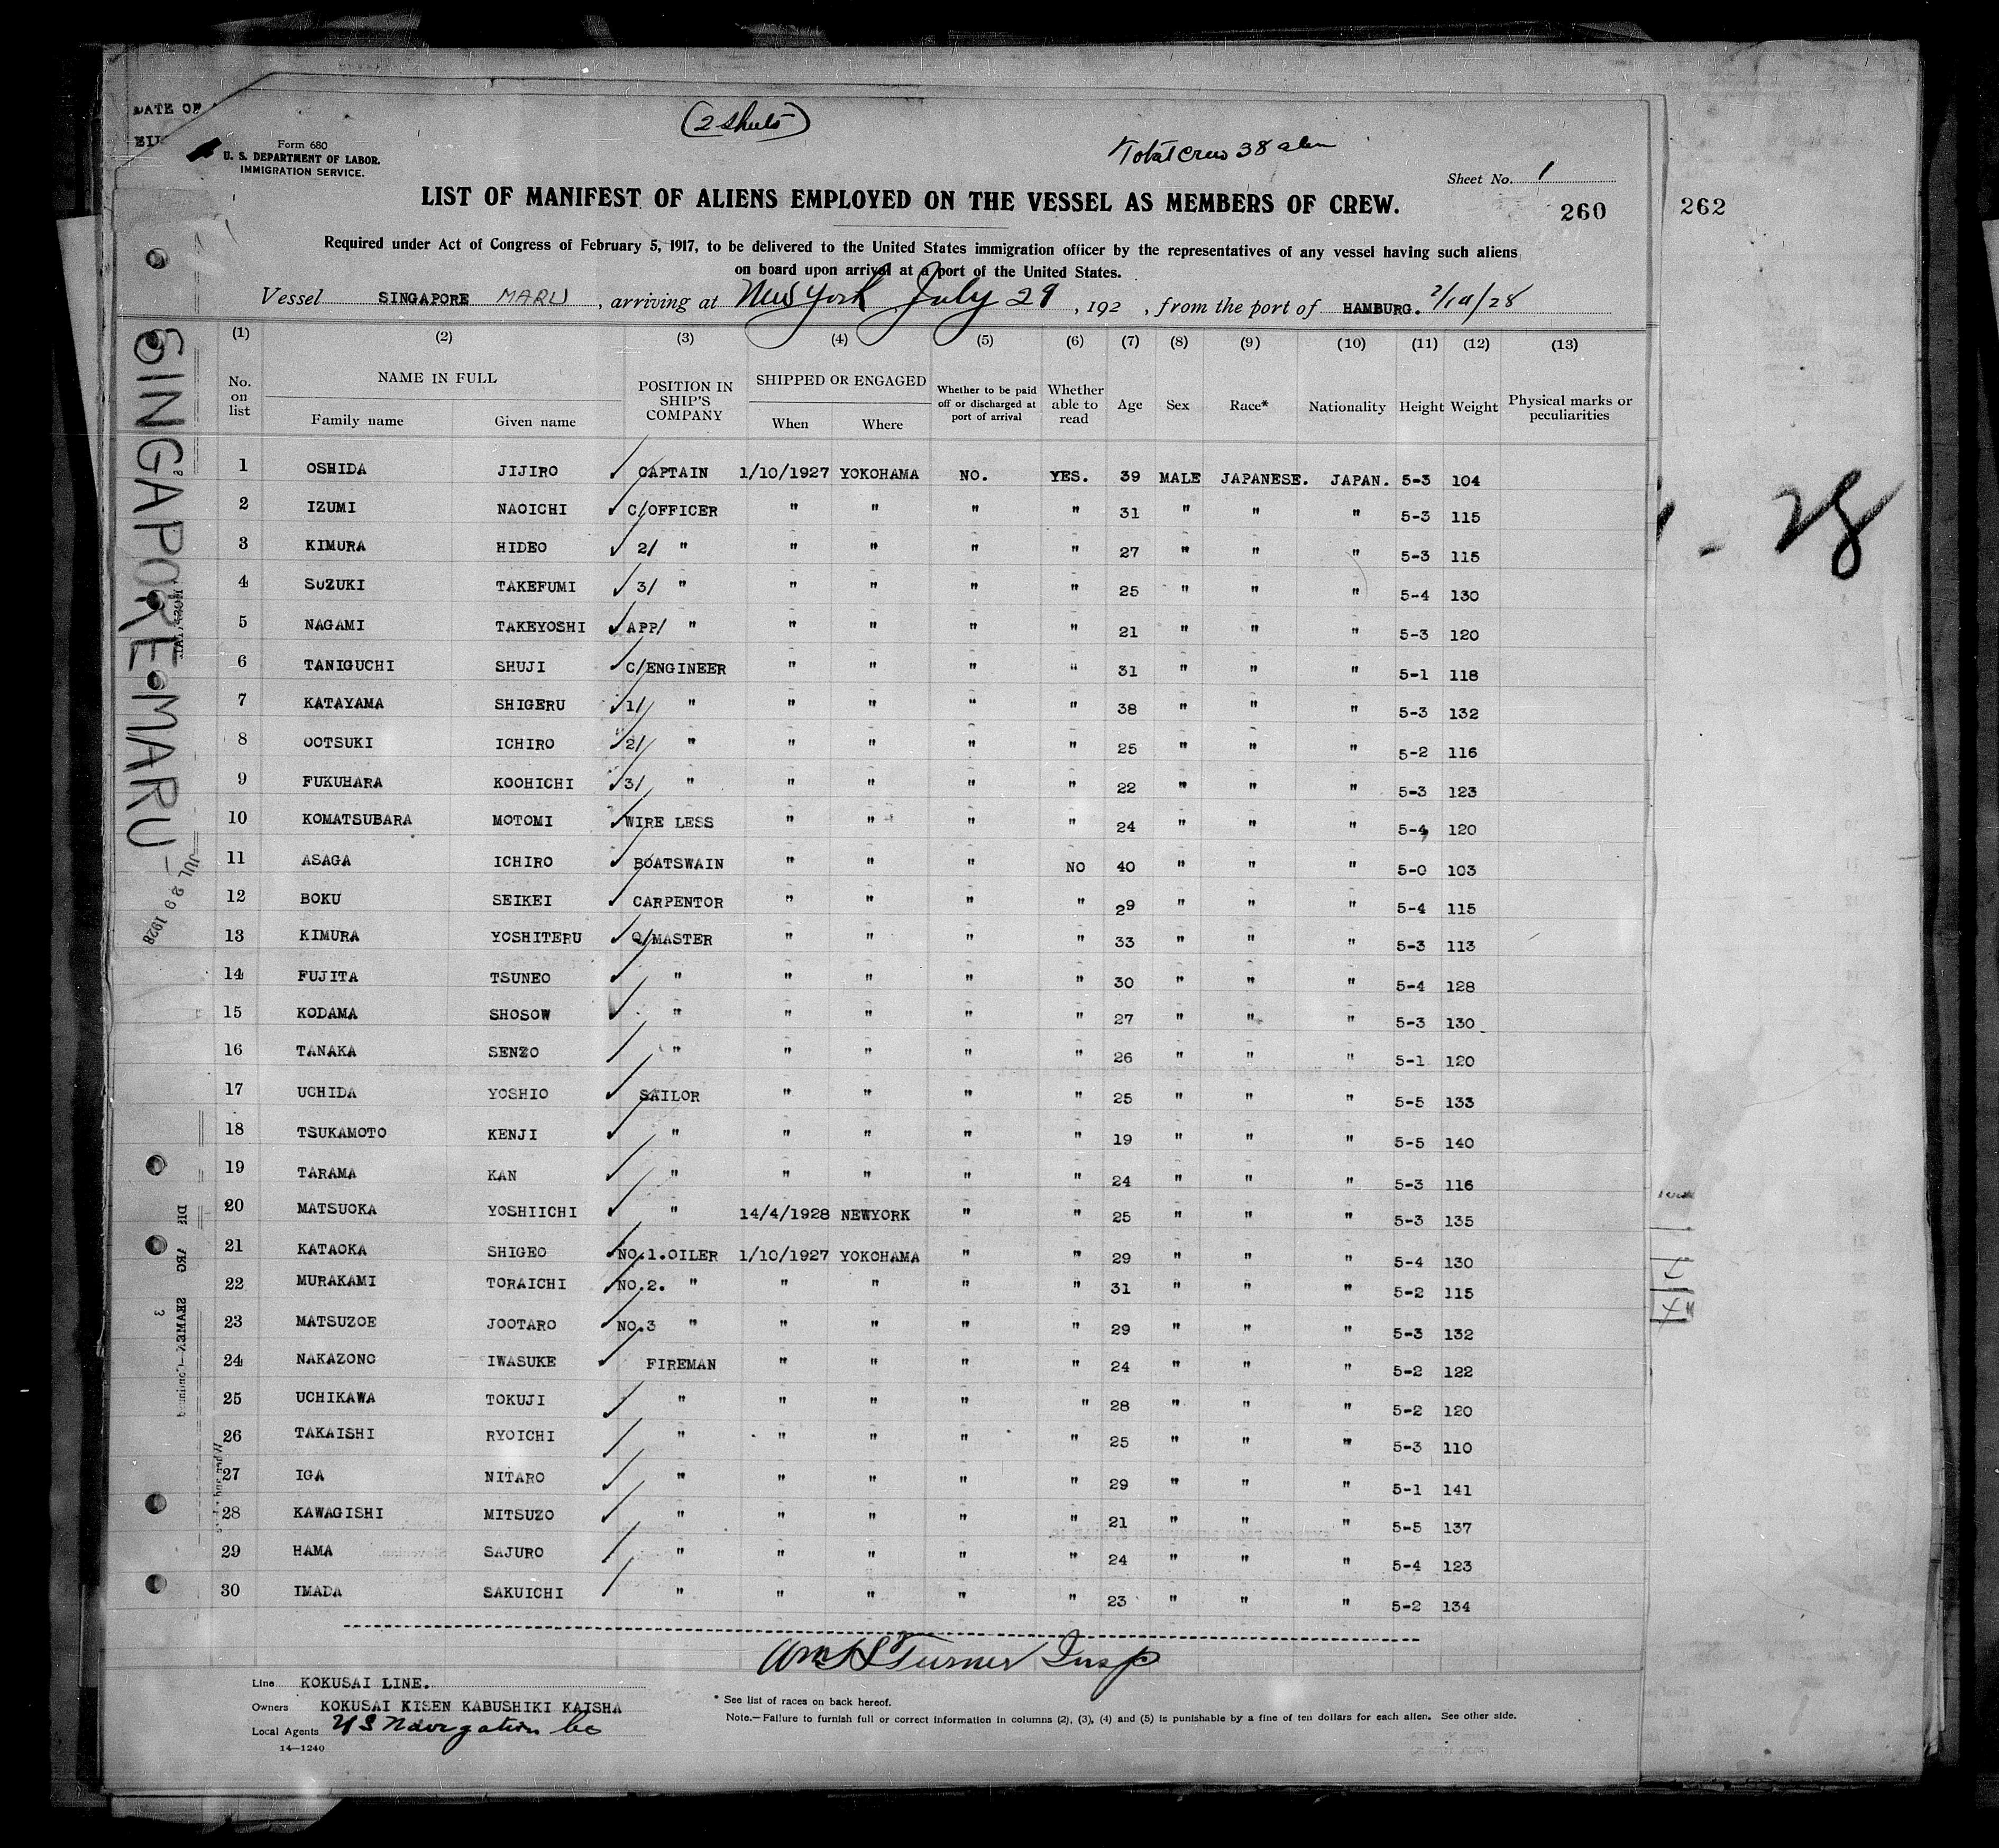 DATE OF
(2 sheets)
Total Crew 38 alien
Form 680
U. S. DEPARTMENT OF LABOR.
IMMIGRATION SERVICE.
Sheet No. 1
LIST OF MANIFEST OF ALIENS EMPLOYED ON THE VESSEL AS MEMBERS OF CREW.
260
262
Required under Act of Congress of February 5, 1917, to be delivered to the United States immigration officer by the representatives of any vessel having such aliens
on board upon arrival at a port of the United States.
Vessel SINGAPORE MARU, arriving at New York July 29, 192 , from the port of HAMBURG. 7/14/28
(1) (2) (3) (4) (5) (6) (7) (8) (9) (10) (11) (12) (13)
No. on list NAME IN FULL Family name Given name POSITION IN SHIP'S COMPANY SHIPPED OR ENGAGED When Where Whether to be paid off or discharged at port of arrival Whether able to read Age Sex Race* Nationality Height Weight Physical marks or peculiarities
1 OSHIDA JIJIRO CAPTAIN 1/10/1927 YOKOHAMA NO. YES. 39 MALE JAPANESE. JAPAN. 5-3 104
2 IZUMI NAOICHI C/OFFICER " " " " 31 " " " 5-3 115
3 KIMURA HIDEO 2/ " " " " " 27 " " " 5-3 115
4 SUZUKI TAKEFUMI 3/ " " " " " 25 " " " 5-4 130
5 NAGAMI TAKEYOSHI APP/ " " " " " 21 " " " 5-3 120
6 TANIGUCHI SHUJI C/ENGINEER " " " " 31 " " " 5-1 118
7 KATAYAMA SHIGERU 1/ " " " " " 38 " " " 5-3 132
8 OOTSUKI ICHIRO 2/ " " " " " 25 " " " 5-2 116
9 FUKUHARA KOOHICHI 3/ " " " " " 22 " " " 5-3 123
10 KOMATSUBARA MOTOMI WIRE LESS " " " " 24 " " " 5-4 120
11 ASAGA ICHIRO BOATSWAIN " " " NO 40 " " " 5-0 103
12 BOKU SEIKEI CARPENTOR " " " " 29 " " " 5-4 115
13 KIMURA YOSHITERU Q/MASTER " " " " 33 " " " 5-3 113
14 FUJITA TSUNEO " " " " " 30 " " " 5-4 128
15 KODAMA SHOSOW " " " " " 27 " " " 5-3 130
16 TANAKA SENZO " " " " " 26 " " " 5-1 120
17 UCHIDA YOSHIO SAILOR " " " " 25 " " " 5-5 133
18 TSUKAMOTO KENJI " " " " " 19 " " " 5-5 140
19 TARAMA KAN " " " " " 24 " " " 5-3 116
20 MATSUOKA YOSHIICHI " 14/4/1928 NEWYORK " " 25 " " " 5-3 135
21 KATAOKA SHIGEO NO.1.OILER 1/10/1927 YOKOHAMA " " 29 " " " 5-4 130
22 MURAKAMI TORAICHI NO.2. " " " " " 31 " " " 5-2 115
23 MATSUZOE JOOTARO NO.3 " " " " " 29 " " " 5-3 132
24 NAKAZONO IWASUKE FIREMAN " " " " 24 " " " 5-2 122
25 UCHIKAWA TOKUJI " " " " " 28 " " " 5-2 120
26 TAKAISHI RYOICHI " " " " " 25 " " " 5-3 110
27 IGA NITARO " " " " " 29 " " " 5-1 141
28 KAWAGISHI MITSUZO " " " " " 21 " " " 5-5 137
29 HAMA SAJURO " " " " " 24 " " " 5-4 123
30 IMADA SAKUICHI " " " " " 23 " " " 5-2 134
Wm S Turner Insp
Line KOKUSAI LINE.
Owners KOKUSAI KISEN KABUSHIKI KAISHA
Local Agents US Navigation Co
14—1240
* See list of races on back hereof.
Note.—Failure to furnish full or correct information in columns (2), (3), (4) and (5) is punishable by a fine of ten dollars for each alien. See other side.
SINGAPORE MARU -
JUL 29 1928
- 28